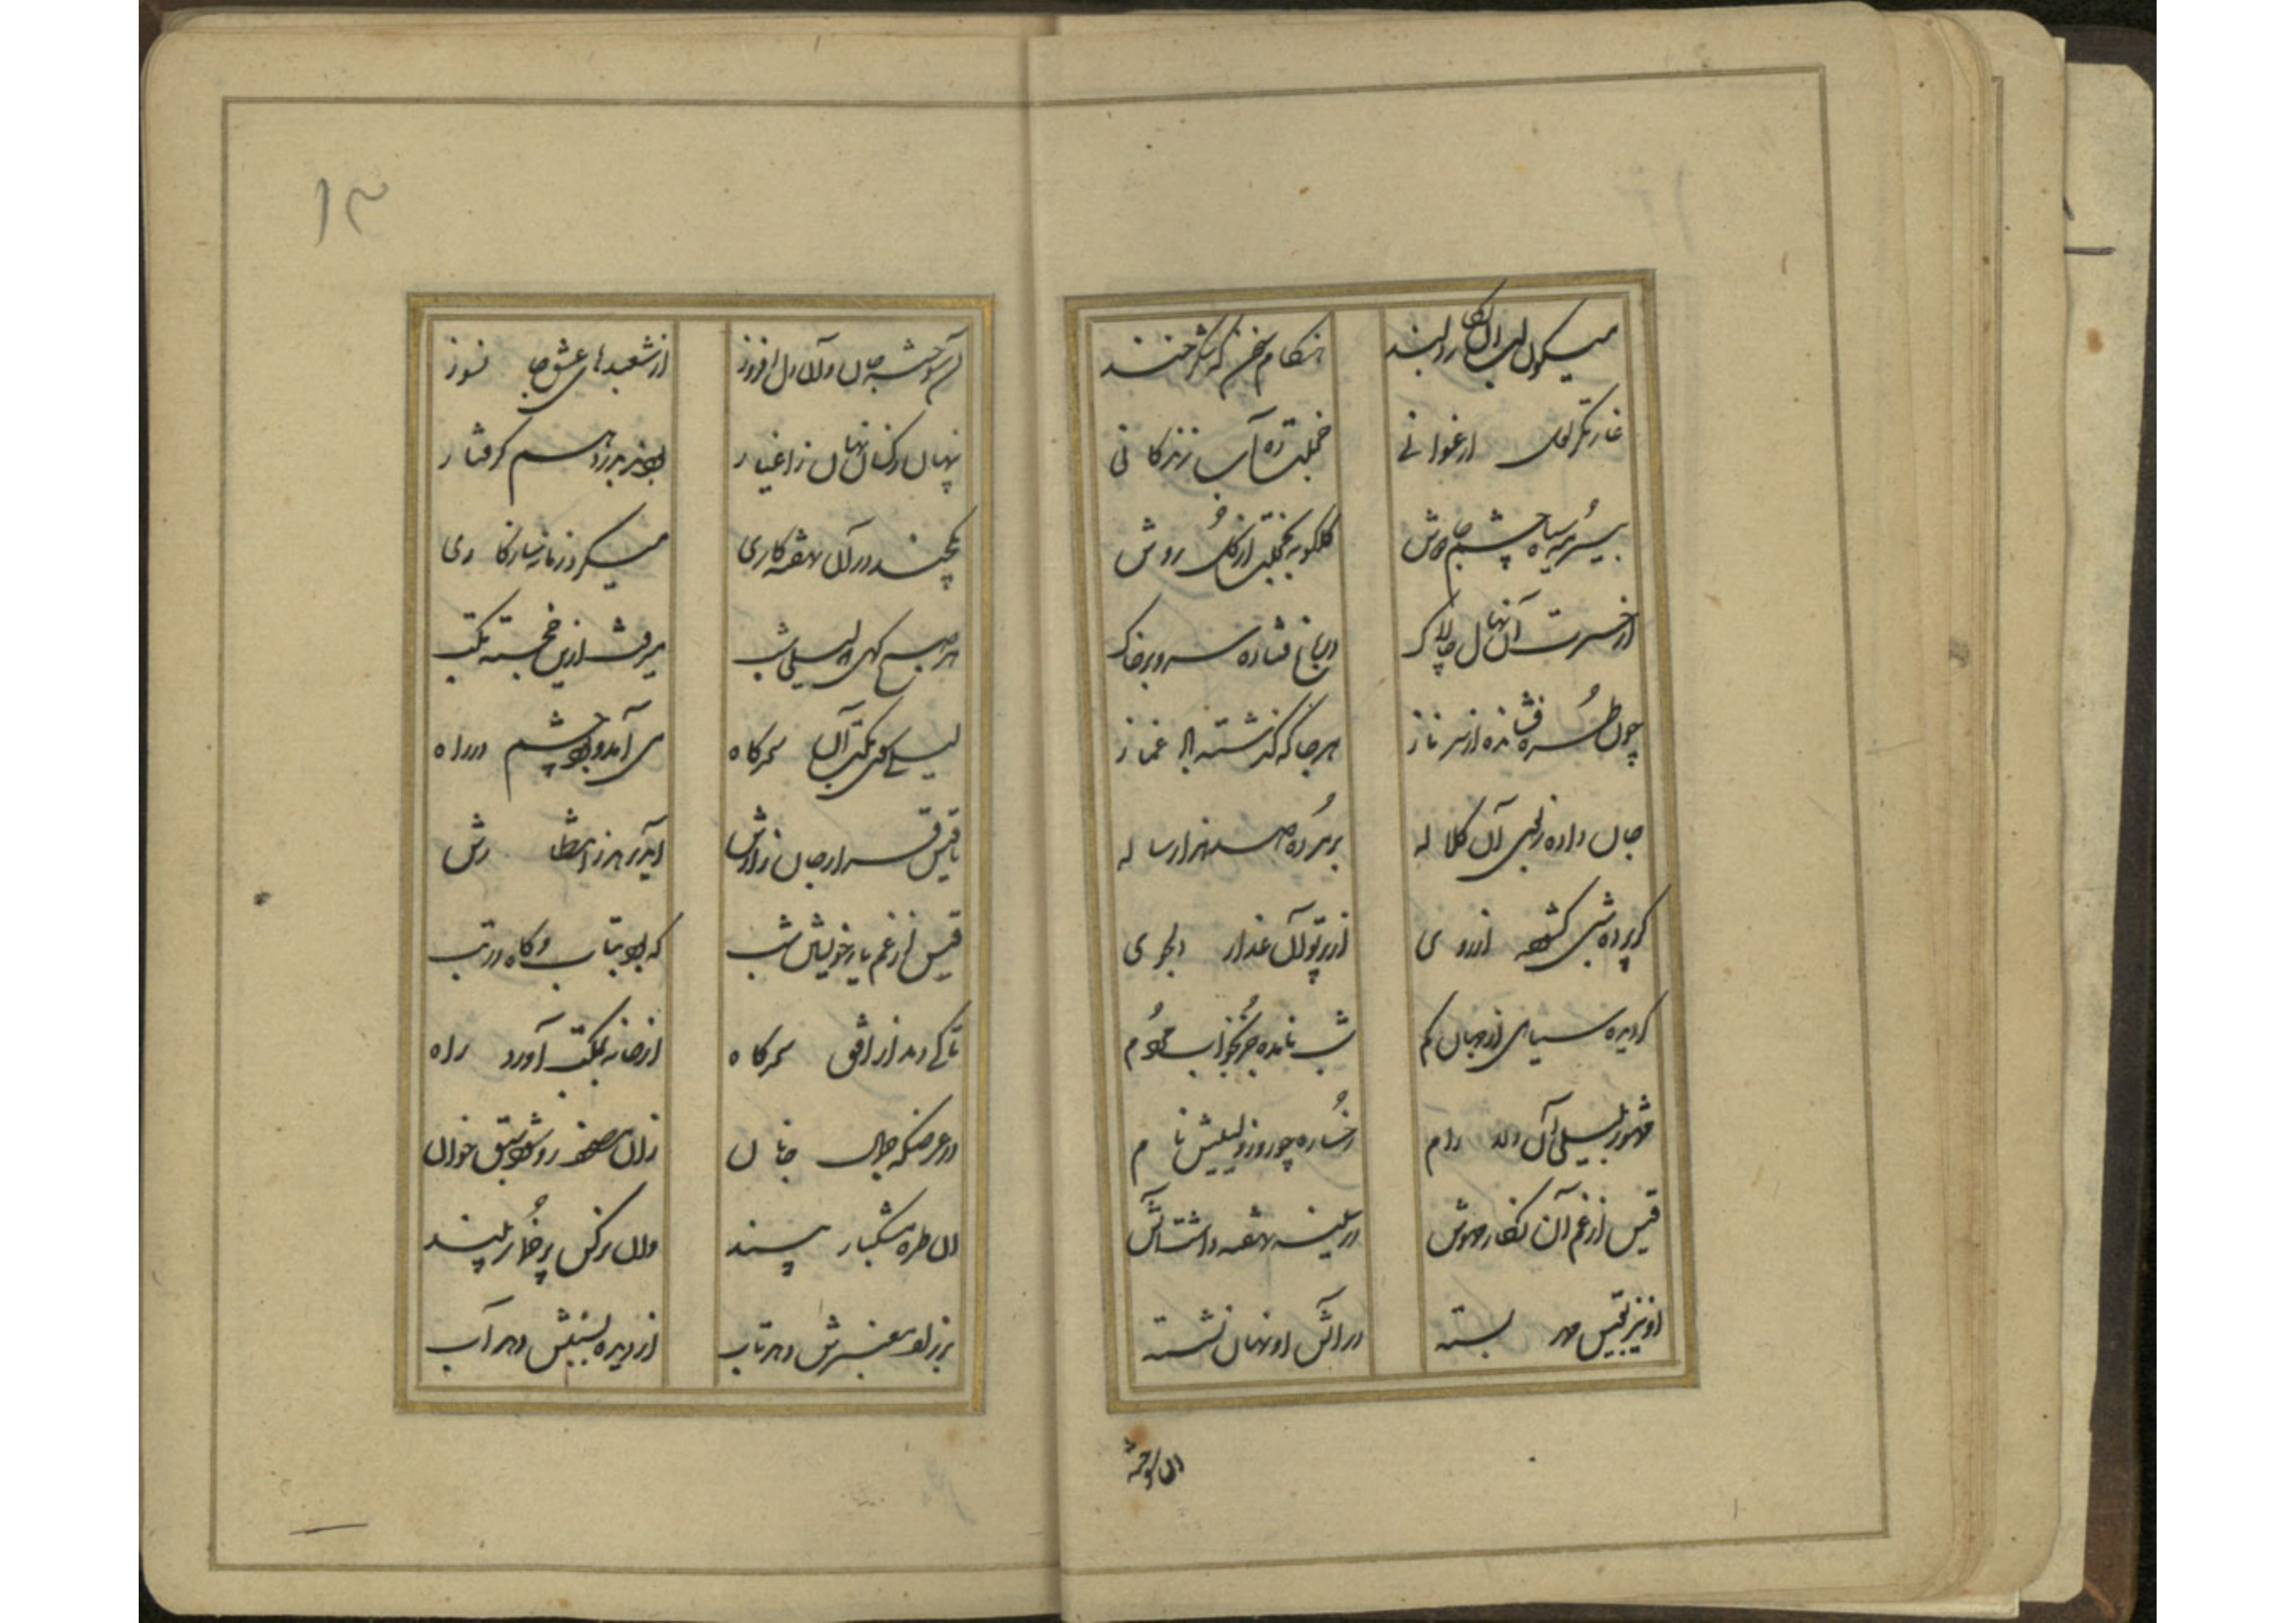 میکون لب آن نکار دلبند هنکام سخن که شکر خند
غارتکر لعل ارغوانی خجلت ده آب زندکانی
بیسرمه سیاه چشم جادوش کلکونه بخجلت از کل روش
از حسرت آن نهال چالاک در باغ فتاده سرو بر خاک
چون طره فشانده از سر ناز هر جا که کذشته غماز
جان داده ز لعبی آن کلاله بر مرده صد هزار ساله
کر پرده شبی کشوده از روی از پرتو آن عذار دلجوی
کردیده سیاهی از جهان کم شب نامده جز بخواب مردم
مشهور بلیلی آن دلارام رخساره چو روز و لیلیش نام
قیس از غم آن نکار مهوش در سینه نهفته داشت آتش
او نیز بقیس مهر بسته در آتش او نهان نشسته
آن سوخته
۱۳
آن سوخته جان و آن دل افروز از شعبدهای عشق جانسوز
پنهان ز کسان نهان ز اغیار بودند بدرد هم کرفتار
یکچند در آن نهفته کاری میکرد زمانه سازکاری
هر صبح که لیلی شب میرفت ازین خجسته مکتب
لیلی سوی مکتب آن سحرکاه می آمد و بود چشم در راه
تا قیس قرار جان زارش آید بر در انتظارش
قیس از غم یار خویش شب که بود بتاب و کاه در تب
تا کی دمد از افق سحرکاه از خانه بمکتب آورد راه
در عرضکه جمال جانان زان صفحه رو شود سبق خوان
زان طره مشکبار پسند وان نرکس پر خمار بیند
بر زلف معنبرش دهد تاب از دیده بسنبلش دهد آب